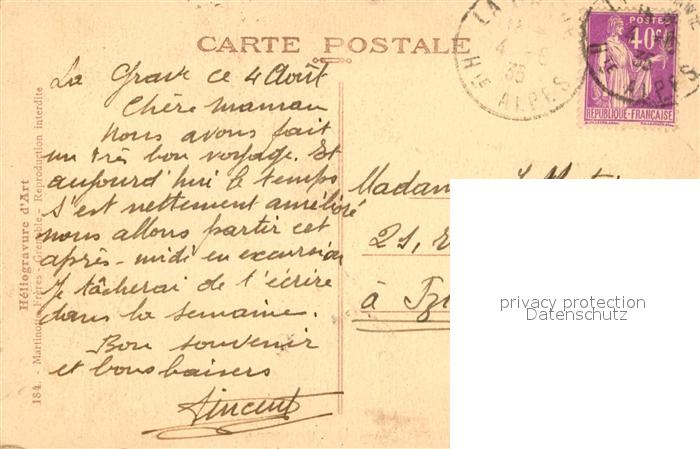 CARTE POSTALE
La Grave ce 4 Août
Chère maman
Nous avons fait
un très bon voyage. Et
aujourd'hui le temps
s'est nettement amélioré
nous allons partir cet
après-midi en excursion
Je tâcherai de t'écrire
dans la semaine.
Bon souvenir
et bons baisers
Vincent
Héliogravure d'Art
184. - Martinotto Frères - Grenoble - Reproduction interdite
LA GRAVE
4 - 8
35
Hte ALPES
POSTES
40c
RÉPUBLIQUE-FRANÇAISE
35
Hte ALPES
Madam
21,
à
privacy protection
Datenschutz